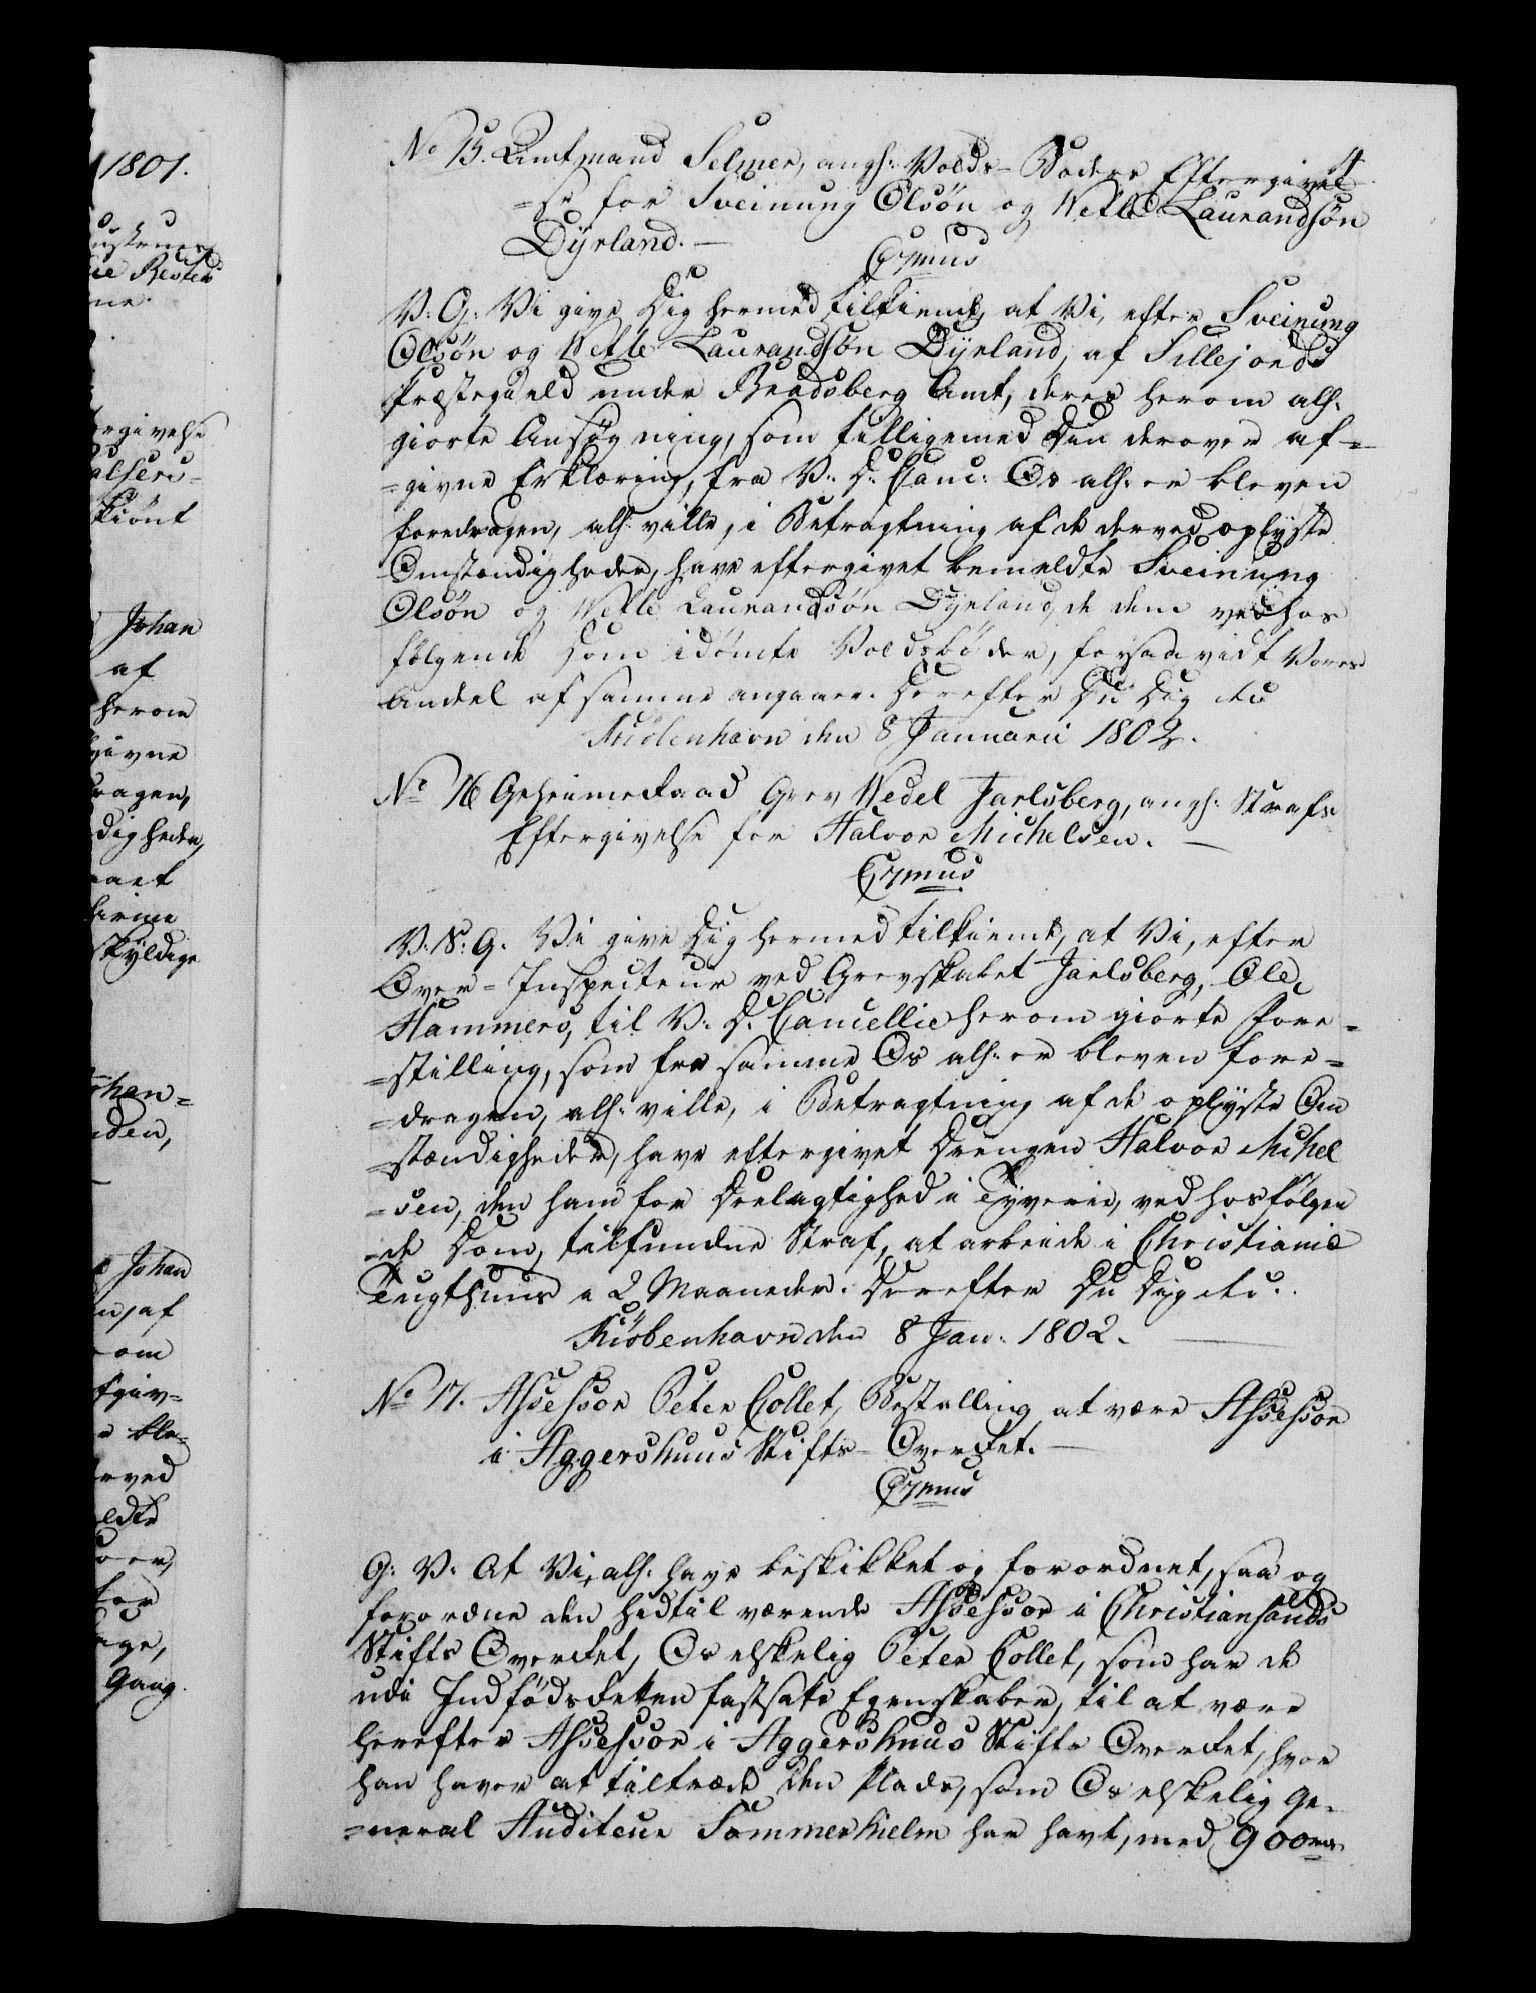 1801.
Rested
ne.
rgivelse
alseri-
skiönt
Johan
af
herom
givne
ragen,
digheder,
aaet
skyldige
ohan=
nden,
Johan
n, af
om
fgiv=
e ble-
erved
eldte
oer,
for
age,
Gang.
4
No 15. Amtmand Selmer, angh: Volds-Böders Eftergivel
=se for Sveinung Olsön og Vetle Laurandsön
Dÿrland. —
Cr7mus
V: G: Vi give Dig hermed tilkiende, at Vi, efter Sveinung
Olsön og Vetle Laurandsön Dÿrland, af Sillejords
Præstegield under Bradsberg Amt, deres herom alh.
giorte Ansøgning, som tilligemed Din derover af=
=givne Erklæring, fra V: D: Canc: Os alh. er bleven
foredragen, alh. ville, i Betragtning af de derved oplyste
Omstændigheder, have eftergivet bemeldte Sveinung
Olsön og Vetle Laurandsön Dÿrland, de dem ved hos
følgende Dom idömte Voldsböder, forsaavidt Vores
Andel af samme angaaer. Derefter Du Dig etc
Kiöbenhavn den 8 Januarii 1802.
No 16 Geheimeraad Grev Wedel Jarlsberg, angh: Strafs
Eftergivelse for Halvor Michelsen. —
Cr7mus
V: S: G. Vi give Dig hermed tilkiende, at Vi, efter
Over=Inspecteur ved Grevskabet Jarlsberg, Ole
Hammers, til V: D. Cancellie herom giorte Fore=
=stilling, som fra samme Os alh: er bleven fore=
=dragen, alh: ville, i Betragtning af de oplyste Om
=stændigheder, have eftergivet Drengen Halvor Michel
=sen, den ham for Deelagtighed i Tyverie, ved hosfölgen
=de Dom, tilfundne Straf, at arbeide i Christiania
Tugthuus i 2 Maaneder. Derefter Du Dig etc.
Kiöbenhavn den 8 Jan: 1802. —
No 17. Assessor Peter Collet, Bestalling at være Assessor
i Aggershuus Stifts-Overret. —
Cr7mus
G: V: At Vi, alh. have beskikket og forordnet, saa og
forordne den hidtil værende Assessor i Christiansands
Stifts Overret, Os elskelig Peter Collet, som har de
udi Indfödsretten fastsatte Egenskaber, til at være
herefter Assessor i Aggershuus Stifts Overret, hvor
han haver at tiltræde den Plads, som Os elskelig Ge-
=neral Auditeur Sommerhielm har havt, med 900